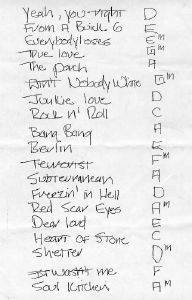 Yeah, you right D
From A Buick 6 E
Everybody loses Em
True love G
The porch A
Ain't Nobody Whole Gm
Junkie love D
Rock n' Roll C
Bang Bang A
Berlin E
Terrorist F
Subterranean Am
Freezin' in Hell D
Red Scar Eyes Am
Dear lord E
Heart of Stone G
Shelter Dm
wasn't me F
Soul Kitchen Am